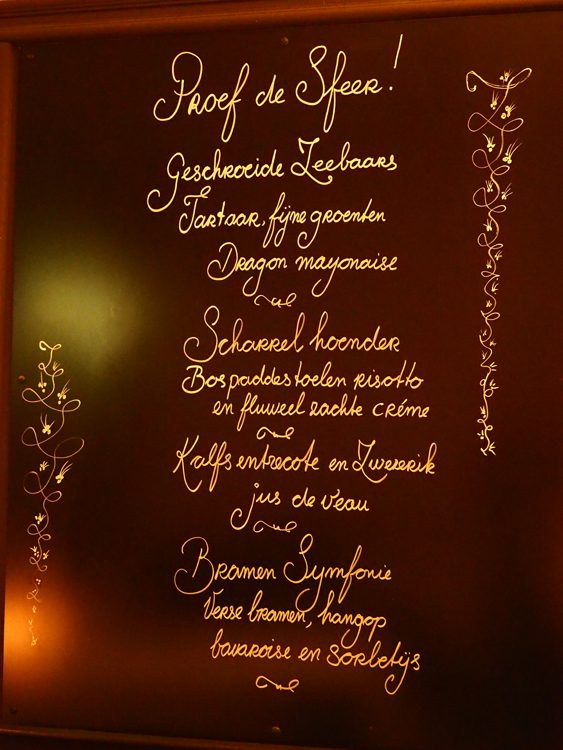 Proef de Sfeer!
Geschroeide Zeebaars
Tartaar, fijne groenten
Dragon mayonaise
Scharrel hoender
Bospaddestoelen risotto
en fluweel zachte créme
Kalfs entrecote en Zwezerik
jus de veau
Bramen Symfonie
Verse bramen, hangop
bavaroise en sorbetijs